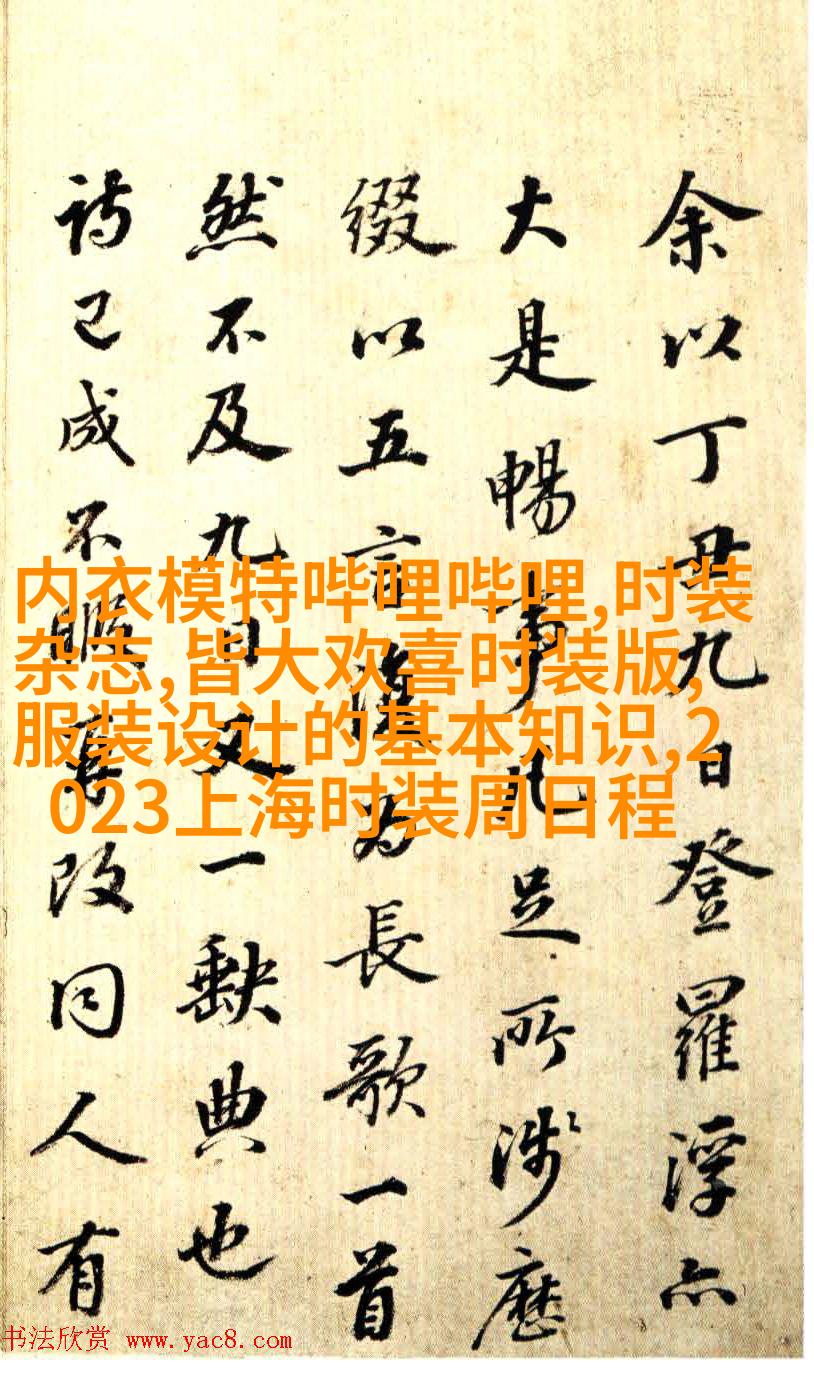 余以丁丑九日登羅浮亦
大是暢事凡足所涉歷
綴以五言復為長歌一首
然不及九日又一缺典也
詩已成不暇再改同人有
内衣模特哔哩哔哩,时装
杂志,皆大欢喜时装版,
服装设计的基本知识,2
023上海时装周日程
书法欣赏 www.yac8.com